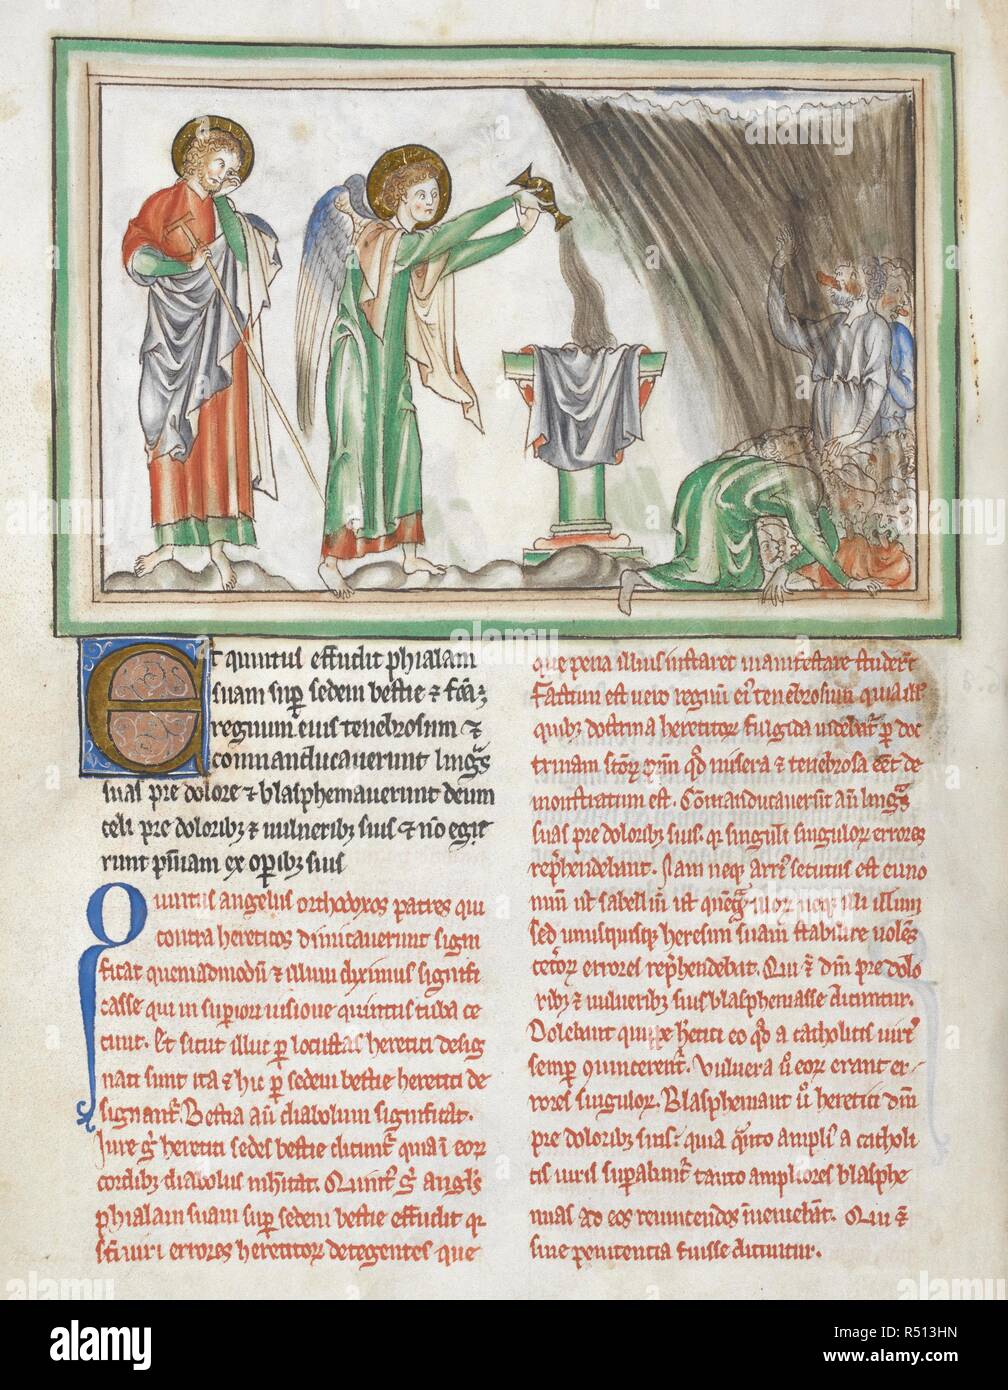 Et quintus effudit phialam
suam sup sedem bestie ⁊ fcm
regnum eius tenebrosum ⁊
conmanducauerunt lingas
suas pre dolore ⁊ blasphemauerunt deum
celi pre dolorib; ⁊ uulnerib; suis ⁊ nō egit
runt pniam ex opib; suis
Quintus angelus orthodoxos patres qui
contra hereticos dimicauerunt signi
ficat quemadmodū ⁊ illum diximus signifi
casse qui in supiori uisione quintus tuba ce
cinit. Et sicut illuc p locustas heretici desig
nati sunt ita ⁊ hic p sedem bestie heretici de
signant. Bestia aū diabolum significat.
Iure g heretici sedes bestie dicunt quia ī eor
cordib; diabolus inhitat. Quint g angls
phialam suam sup sedem bestie effudit q
sci uiri errores hereticor detegentes que
que pena illius instaret manifestare studert
Factum est uero regnū ei tenebrosum quia ill
quib; doctrina hereticor fulgida uidebat p doc
trinam scor pm qd misera ⁊ tenebrosa eet de
monstratum est. Conmanducauert aū lingas
suas pre dolorib; suis. q singuli singulor errores
rephendebant. Nam neq; arri secutus est euno
miū ut sabelliū ut
sed unusquisq; heresim suam stabilire uoles
cetor errores rephendebat. Qui ⁊ dm pre dolo
rib; ⁊ uulnerib; suis blasphemasse dicuntur.
Dolebant quippe hetici eo qd a catholicis uiris
semp uincerent. Vulnera u eor erant er-
rores singulor. Blasphemant u heretici dm
pre dolorib; suis: quia quto ampli a catholi
cis uiris supabunt tanto ampliores blasphe
mias
sine penitentia fuisse dicuntur.
alamy
alamy
Image ID: R513HN
www.alamy.com